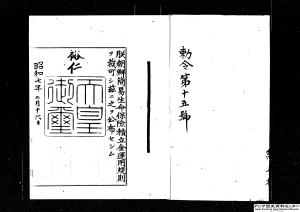 勅令第十五號
朕朝鮮簡易生命保険積立金運用規則
ヲ裁可シ茲ニ之ヲ公布セシム
裕仁
天皇御璽
昭和七年二月十六日
アジア歴史資料センター